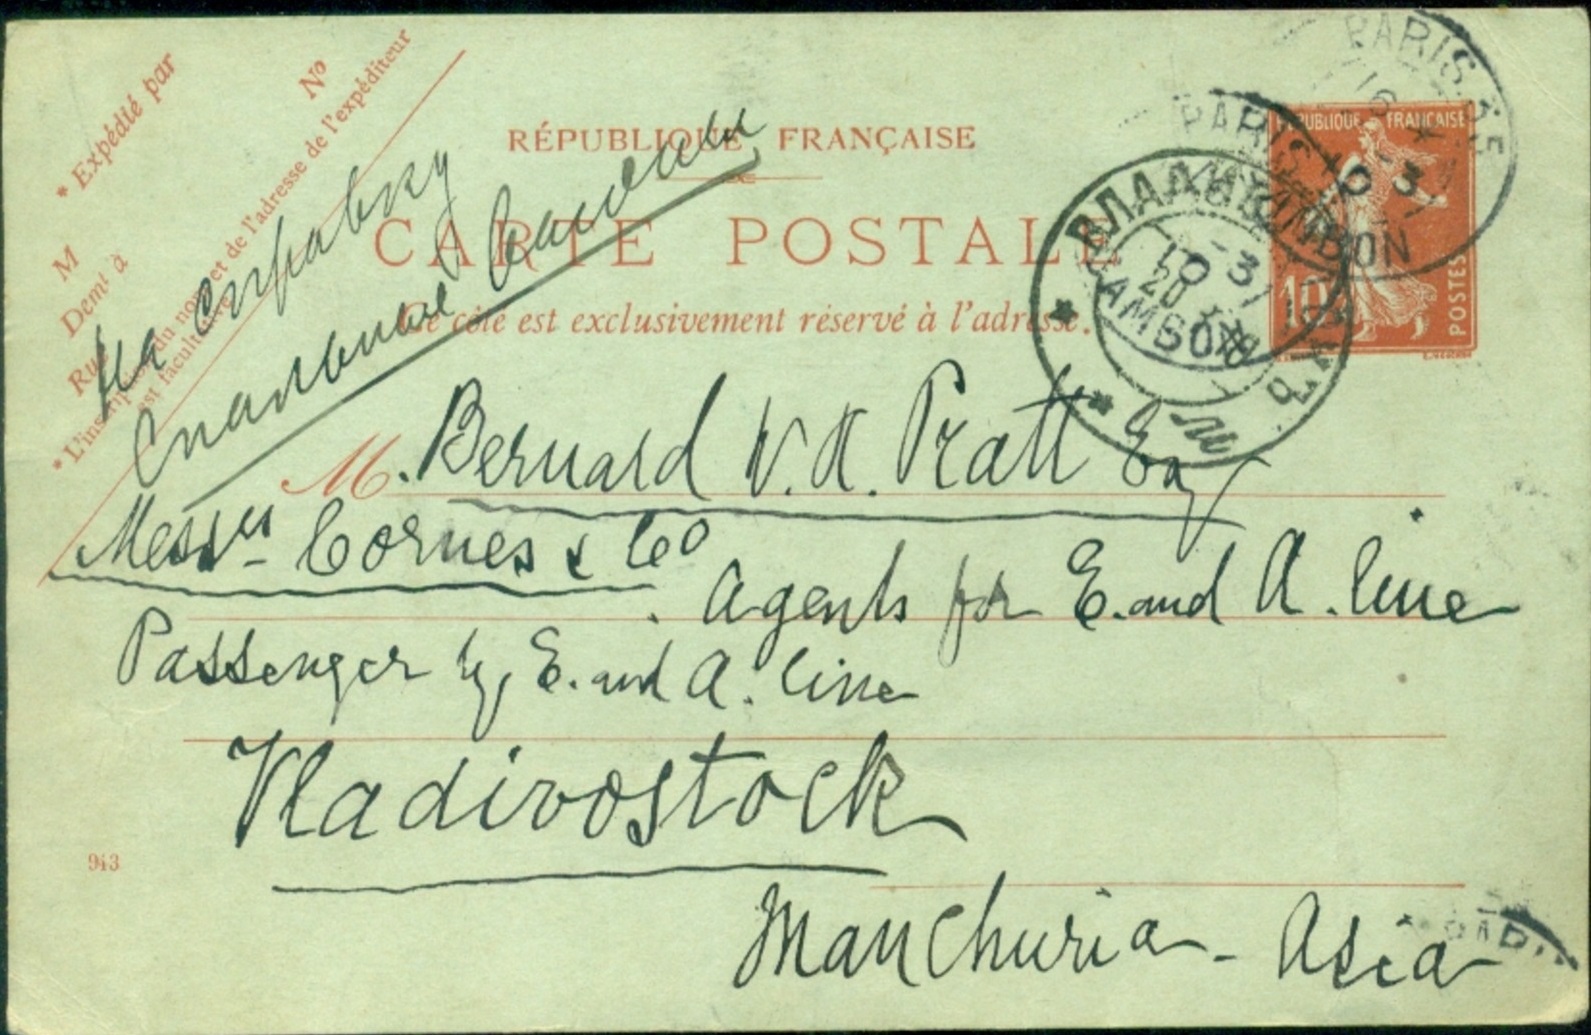 * Expédié par
M
Demt à
Rue
No
* L'inscription du nom et de l'adresse de l'expéditeur
est facultative
RÉPUBLIQUE FRANÇAISE
CARTE POSTALE
Ce côté est exclusivement réservé à l'adresse.
На справку
RÉPUBLIQUE FRANÇAISE
10
POSTES
PARIS
PARIS
10 3
GAMBON
M. Bernard V. R. Pratt Esq
Messrs Cornes & Co
Agents for E. and A. line
Passenger by E. and A. line
Vladivostock
Manchuria - Asia
943